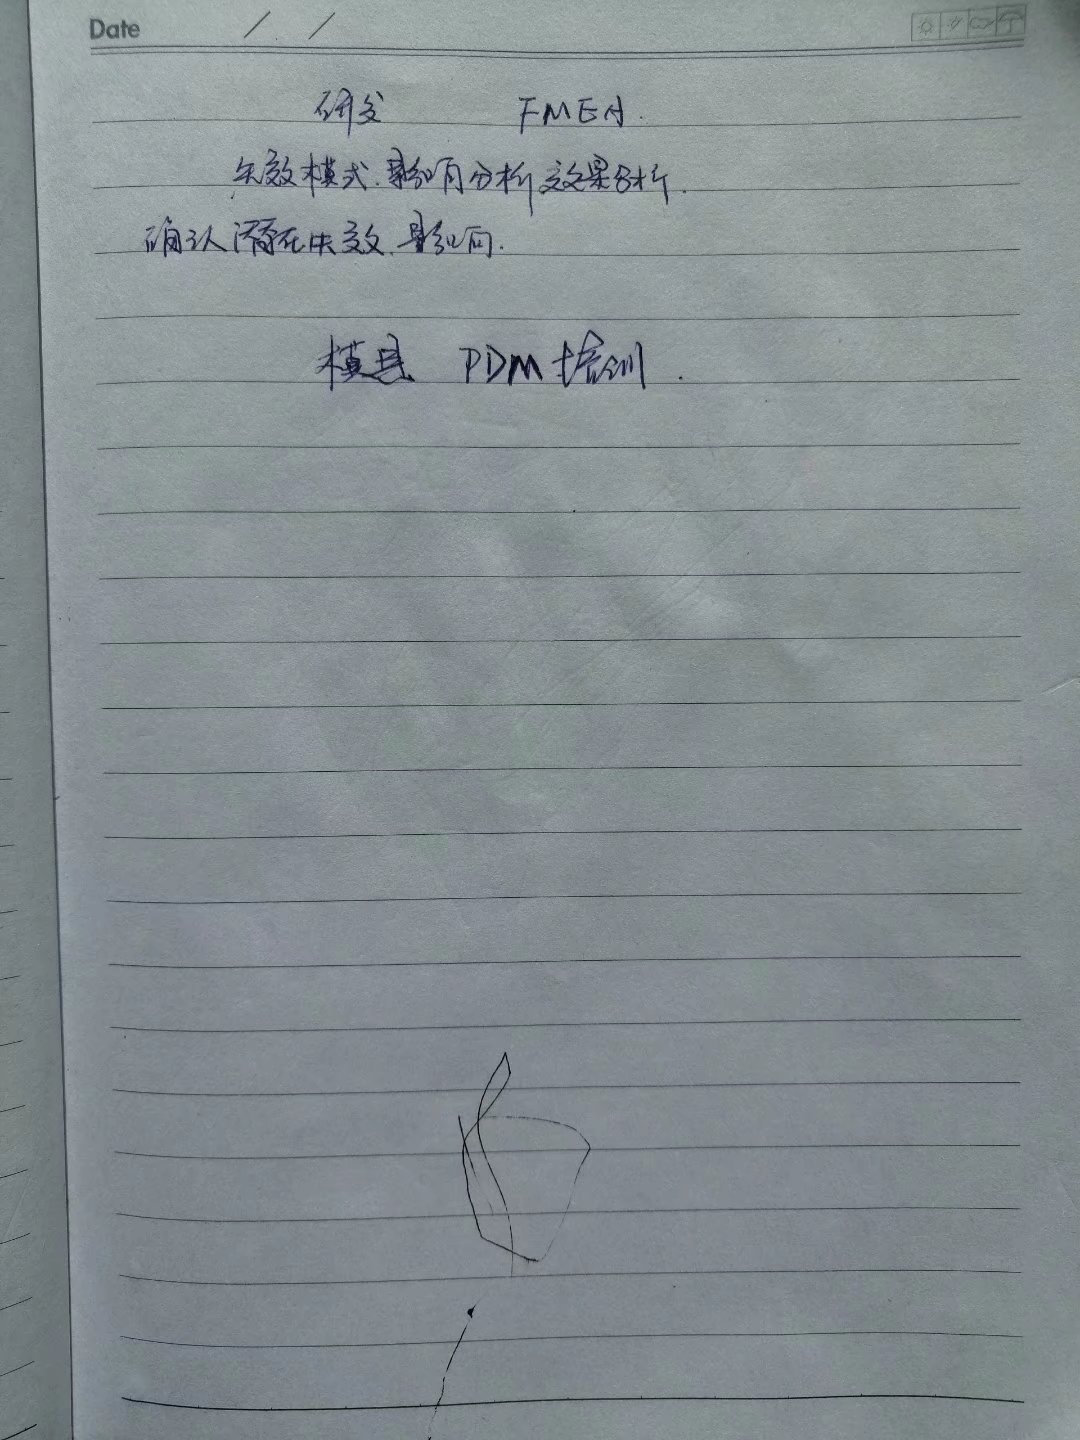 Date / /
研发 FMEA.
失效模式.影响分析 效果分析.
确认潜在失效.影响.
模具 PDM培训.